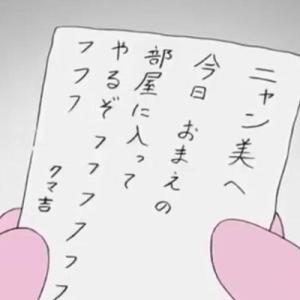 ニャン美へ
今日 おまえの
部屋に入って
やるぞ フフフフフフ
フフフ
クマ吉